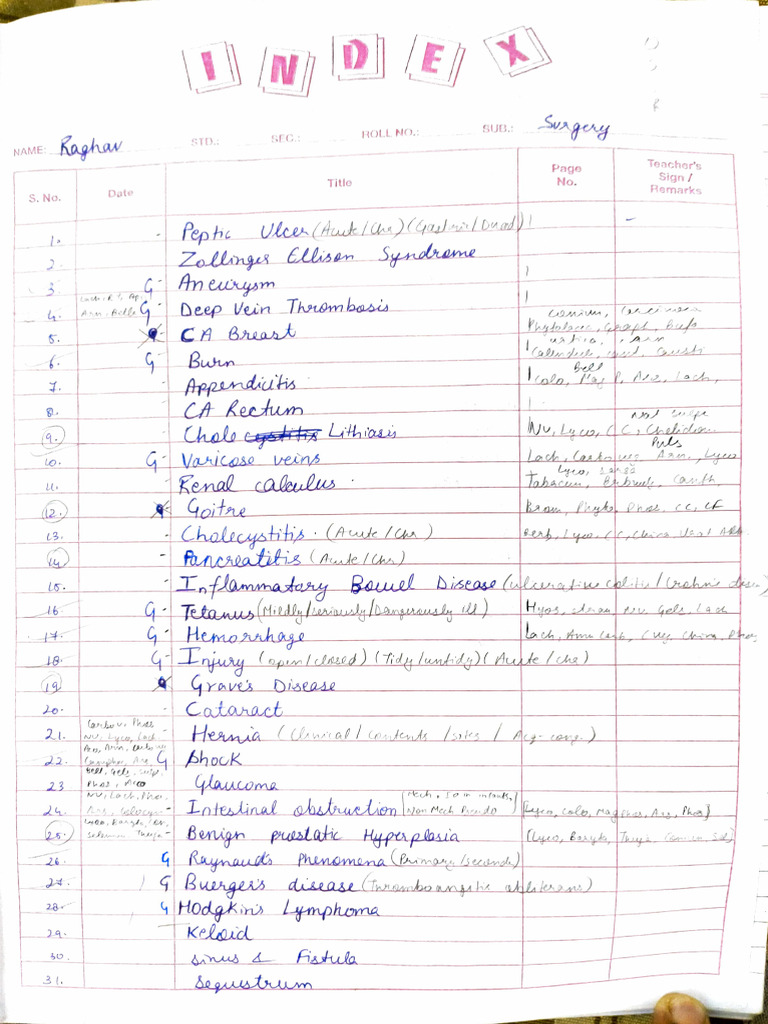 INDEX
NAME: Raghav STD.: SEC.: ROLL NO.: SUB.: Surgery
S. No. Date Title Page No. Teacher's Sign / Remarks
1. - Peptic Ulcer (Acute/Chr) (Gastric/Duod) 1 -
2. Zollinger Ellison Syndrome
3. G- Aneurysm 1
4. G- Deep Vein Thrombosis 1
conium, carcinosin
5. CA Breast Phytolacca, Graph, Bufo
urtica, Arn
6. G Burn 1 Calendula, Canth, Causti
Bell
7. - Appendicitis 1 Colo, Mag P, Ars, Lach,
8. - CA Rectum 1
Nat sulph
9. - Chole Lithiasis NV, Lyco, CC, Chelidon
Puls
10. G- Varicose veins Lach, Carbo veg, Arn, Lyco
Lyco, Sarsa
11. - Renal calculus. Tabacum, Berberis, Canth
12. Goitre Brom, Phyto, Phos, CC, CF
13. - Cholecystitis. (Acute/Chr) Berb, Lyco, CC, China
14. - Pancreatitis (Acute/Chr)
15. - Inflammatory Bowel Disease (ulcerative colitis / Crohn's disea
16. G- Tetanus (Mildly/seriously/Dangerously ill) Hyos, Stram, NV, Gels, Lach
17. G- Hemorrhage Lach, China, Phos,
18. G- Injury (open/closed) (Tidy/untidy) (Acute/chr)
19 - Grave's Disease
20. - Cataract
Carbov, Phos
21. NV, Lyco, Lach - Hernia (Clinical / contents / sites / Acq-cong.)
22. Camphor, Ars G Shock
Bell, Gels, Sulp
23 Phos, Glaucoma
NV, Lach, Phos
24. Ars, Colocyn - Intestinal obstruction [Mech, Non Mech Pseudo] [Lyco, Colo, Mag Phos, Ars, Phos]
25. - Benign prostatic Hyperplasia (Lyco, Baryta, Thuja, Conium, Sel)
Selenium, Thuja
26. G Raynaud's Phenomena (Primary/seconda)
27. G Buerger's disease (Thromboangitis obliterans)
28. G Hodgkin's Lymphoma
29. Keloid
30. Sinus & Fistula
31. Sequestrum